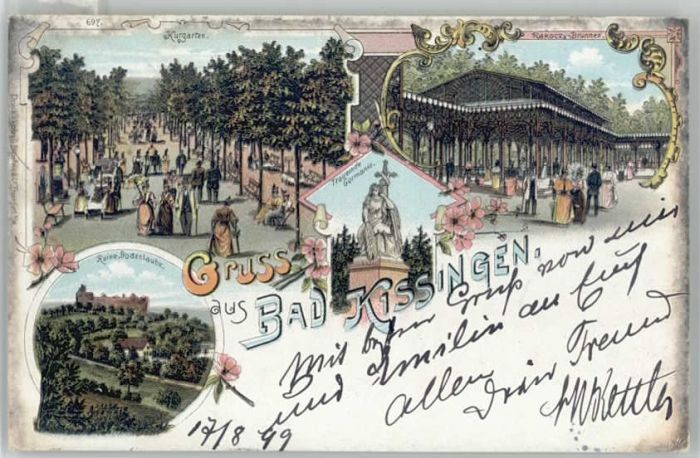 697.
Kurgarten.
Rakoczy-Brunnen.
Trauernde
Germania.
Ruine Bodenlaube.
Gruss
aus BAD KISSINGEN.
Mit Gruß von mir
und Emilie an Euch
allen Dein Freund
17/8 99